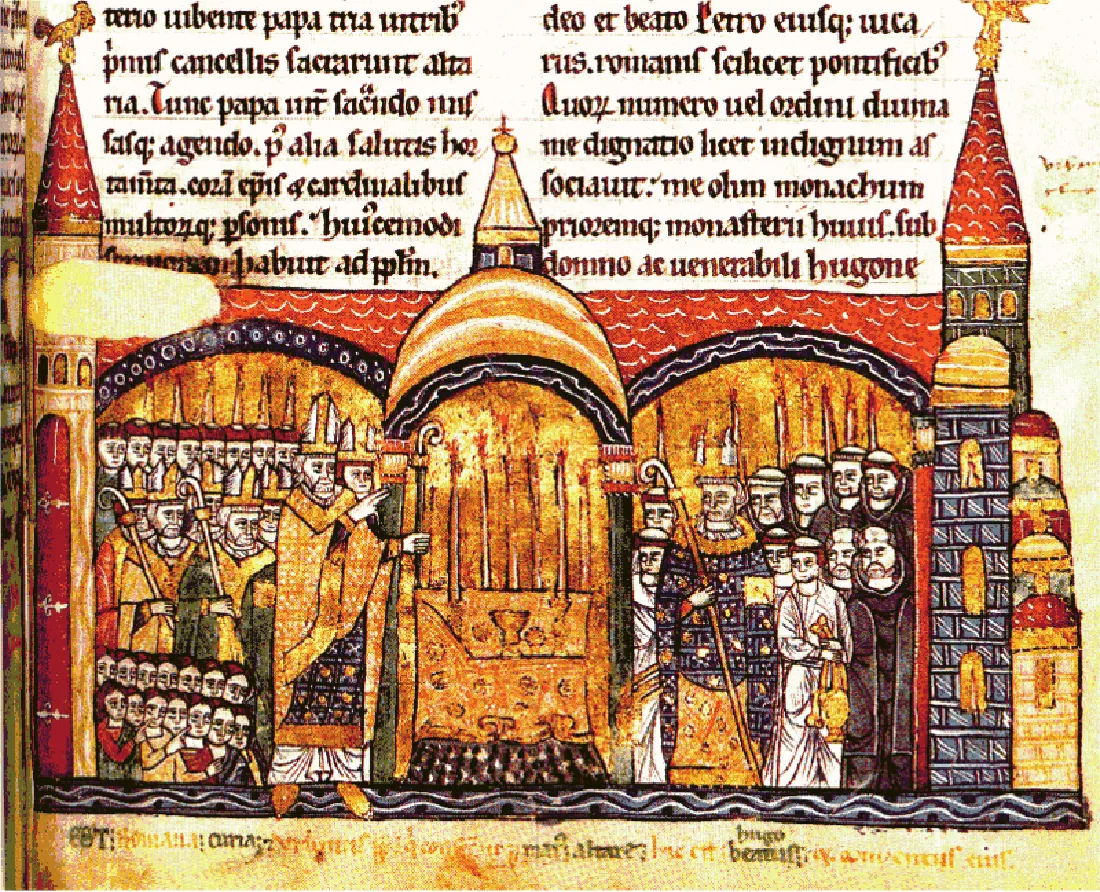 terio uibente papa tria in tribꝰ
pmis cancellis sacrarunt alta
ria. Tunc papa int̄ sacn̄do mis
sasq; agendo. p̄ alia salutis hor
tam̄ta. corā ep̄is & cardinalibus
multorꝝq; ꝑsonis. huiꝰcemodi
habuit ad pp̄lm.
deo et beato Petro eiusq; uica
riis. romanis scilicet pontificibꝰ
Quorꝝ numero uel ordini diuina
me dignatio licet indignum as
sociauit. me olim monachum
prioremq; monasterii huiꝰ. sub
domno ac uenerabili hugone
romana curia
hugo
eius.